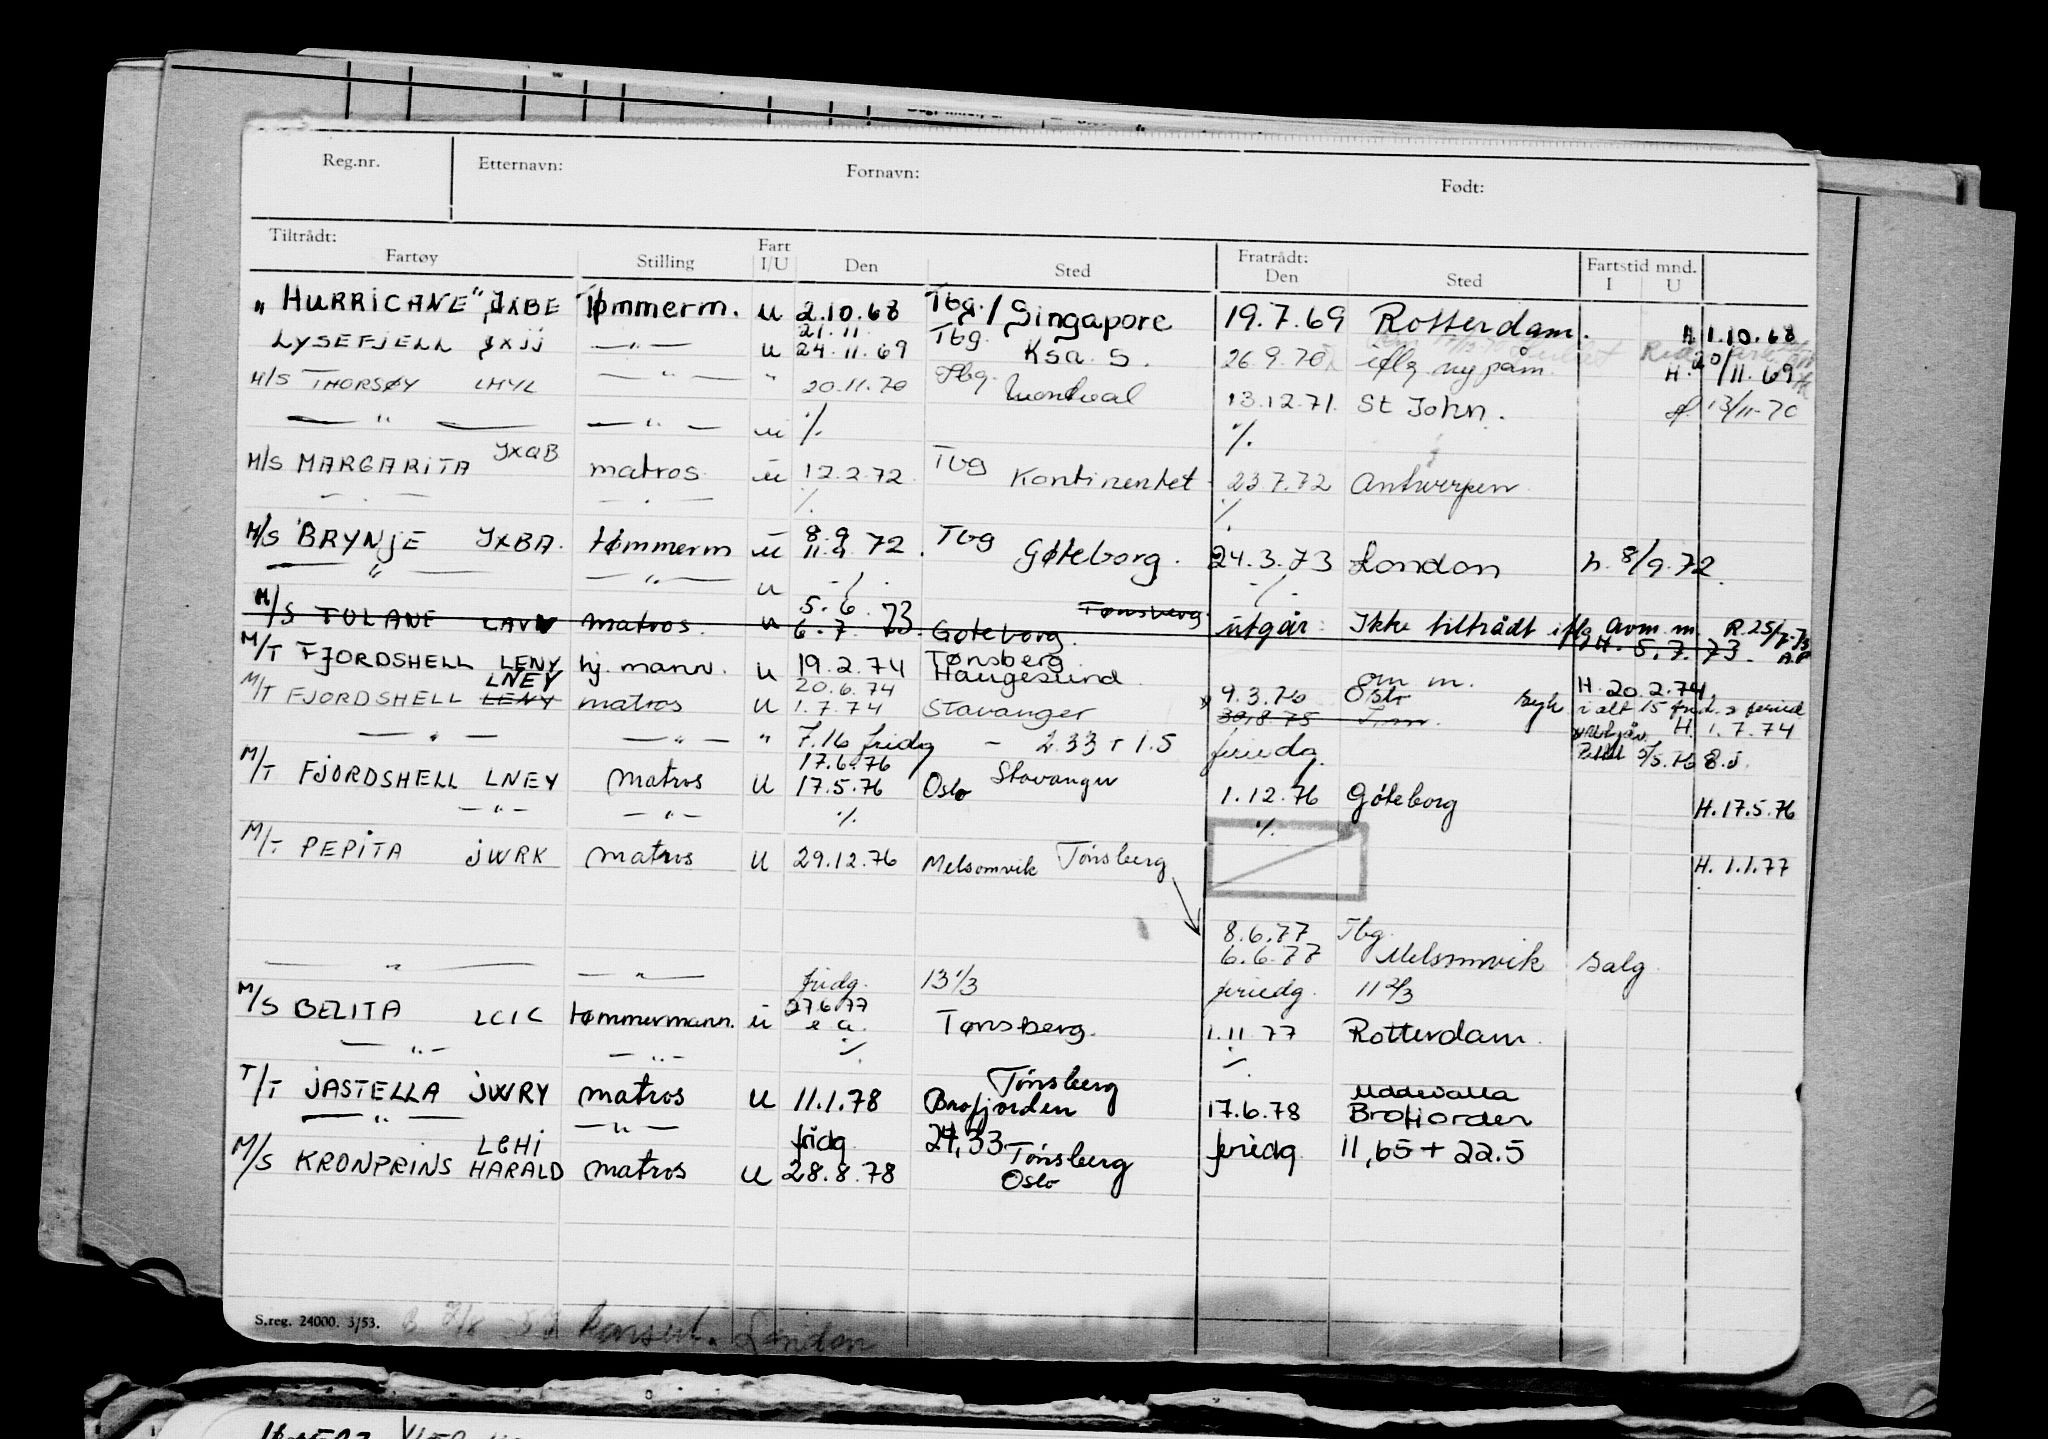 Reg.nr. Etternavn: Fornavn: Født:
Tiltrådt: Fratrådt:
Fartøy Stilling Fart I/U Den Sted Den Sted Fartstid mnd. I U
"HURRICANE" JXBE Tømmerm. u 2.10.68 Tbg./Singapore 19.7.69 Rotterdam. H 1.10.68
LYSEFJELL JXJJ —"— u 21.11. 24.11.69 Tbg. Ksa. S. 26.9.70 iflg ny påm. H. 20/11.69
M/S THORSØY LMYL —"— " 20.11.70 Tbg. Montreal 13.12.71. St John. 13/11-70
—"— —"— u ·/. ·/.
M/S MARGARITA JXQB matros u 17.2.72 Tbg Kontinentet 23.7.72 Antwerpen
—"— —"— ·/. ·/.
M/S BRYNJE JXBA. tømmerm u 8.9 11.9 72. Tbg Gøteborg. 24.3.73 London h. 8/9.72.
—"— —"— u ·/. ·/.
M/S TULANE LAVV matros. u 5.6.73 6.7.73. Tønsberg. Gøteborg. utgår: Ikke tiltrådt iflg avm.m. R.25/7-73
H. 5.7.73. A.P
M/T FJORDSHELL LENY hj.mann. u 19.2.74 Tønsberg Haugesund om m. H. 20.2.74.
M/T FJORDSHELL LNEY LENY matros u 20.6.74 1.7.74 Stavanger 9.3.76 Oslo 30.8.75 syk i alt 15
—"— —"— " 7.16 fridg — 2.33 + 1.5 feriedg. H. 1.7.74
5/5.76
M/T FJORDSHELL LNEY matros U 17.6.76 17.5.76 Oslo Stavanger 1.12.76 Gøteborg H.17.5.76
—"— —"— ·/. ·/.
M/T PEPITA JWRK matros U 29.12.76 Melsomvik Tønsberg H. 1.1.77
8.6.77 Tbg.
6.6.77 Melsomvik salg.
—"— —"— fridg. 13 1/3 feriedg. 11 2/3
M/S BELITA LCIC tømmermann. u 27.6.77 e a. Tønsberg. 1.11.77 Rotterdam.
—"— —"— ·/. ·/.
T/T JASTELLA JWRY matros U 11.1.78 Tønsberg Brofjorden 17.6.78 Uddevalla Brofjorden
—"— —"— fridg 24,33 feriedg 11,65 + 22.5
M/S KRONPRINS HARALD LEHI matros U 28.8.78 Tønsberg Oslo
S.reg. 24000. 3/53. London